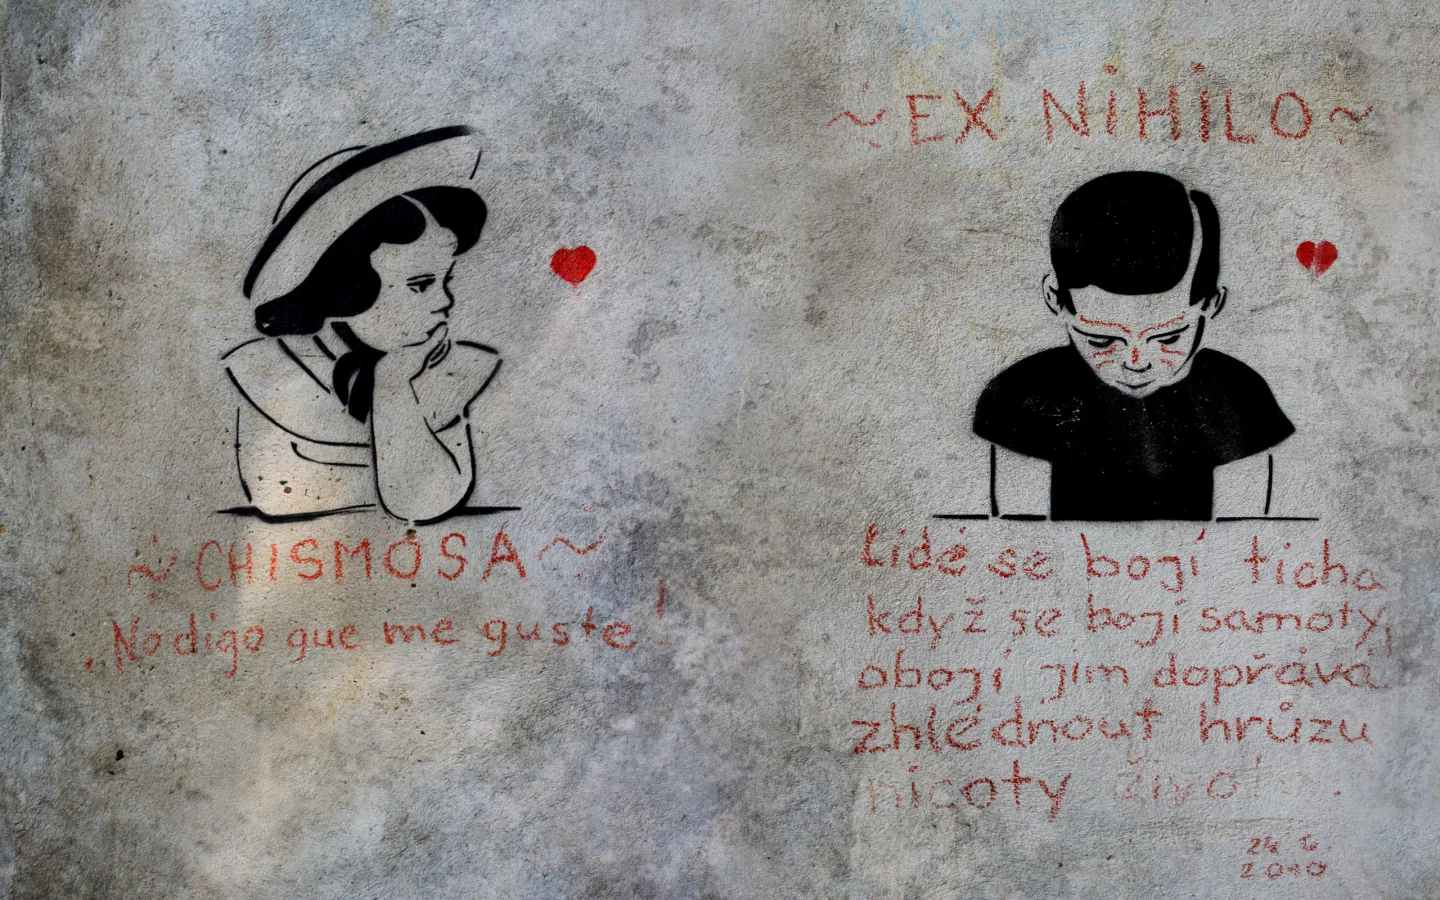 ~ CHISMOSA ~
No digo que me guste!
~ EX NiHiLO ~
Lidé se bojí ticha
když se bojí samoty,
obojí jim dopřává
zhlédnout hrůzu
nicoty života.
2010